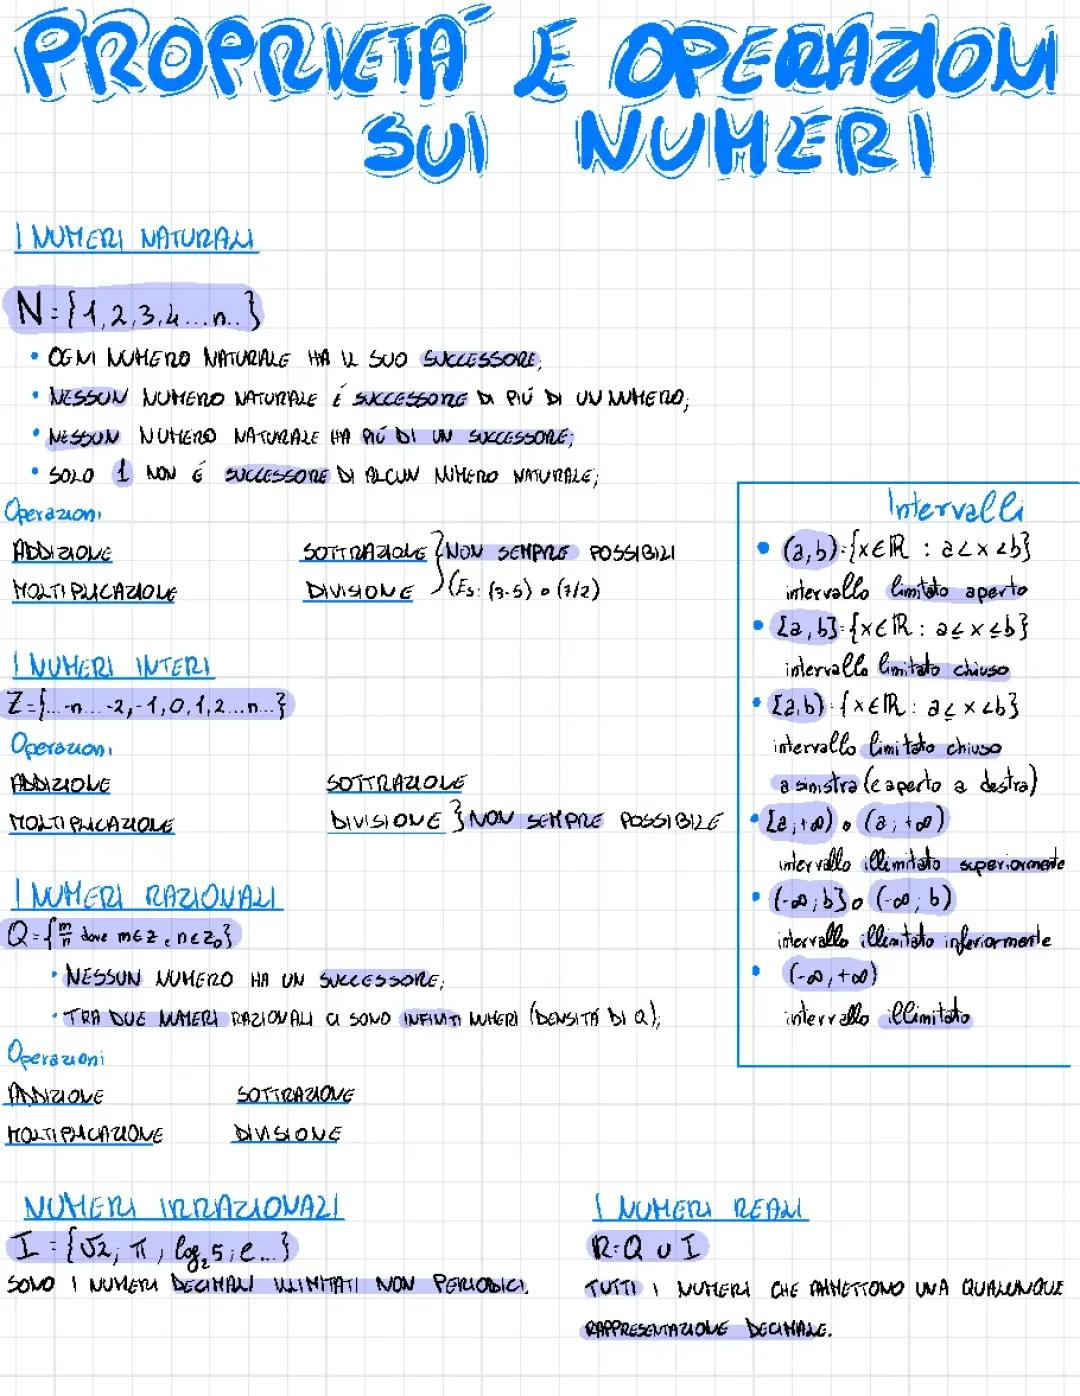 PROPRIETÀ E OPERAZIONI
SUI NUMERI
I NUMERI NATURALI
N={1,2,3,4...n..}
• OGNI NUMERO NATURALE HA IL SUO SUCCESSORE;
• NESSUN NUMERO NATURALE É SUCCESSORE DI PIÚ DI UN NUMERO;
• NESSUN NUMERO NATURALE HA PIÚ DI UN SUCCESSORE;
• SOLO 1 NON É SUCCESSORE DI ALCUN NUMERO NATURALE;
Operazioni
ADDIZIONE SOTTRAZIONE } NON SEMPRE POSSIBILI
MOLTIPLICAZIONE DIVISIONE (Es: (3-5) o (7/2)
I NUMERI INTERI
Z={...-n...-2,-1,0,1,2...n...}
Operazioni
ADDIZIONE SOTTRAZIONE
MOLTIPLICAZIONE DIVISIONE } NON SEMPRE POSSIBILE
I NUMERI RAZIONALI
Q={m/n dove m∈Z e n∈Z₀}
• NESSUN NUMERO HA UN SUCCESSORE;
• TRA DUE NUMERI RAZIONALI CI SONO INFINITI NUMERI (DENSITÁ DI Q);
Operazioni
ADDIZIONE SOTTRAZIONE
MOLTIPLICAZIONE DIVISIONE
Intervalli
• (a,b)={x∈ℝ : a<x<b}
intervallo limitato aperto
• [a,b]={x∈ℝ : a≤x≤b}
intervallo limitato chiuso
• [a,b)={x∈ℝ : a≤x<b}
intervallo limitato chiuso
a sinistra (e aperto a destra)
• [a;+∞) o (a;+∞)
intervallo illimitato superiormente
• (-∞;b] o (-∞;b)
intervallo illimitato inferiormente
• (-∞,+∞)
intervallo illimitato
NUMERI IRRAZIONALI
I={√2; π; log₂5; e...}
SONO I NUMERI DECIMALI ILLIMITATI NON PERIODICI.
I NUMERI REALI
R=Q∪I
TUTTI I NUMERI CHE AMMETTONO UNA QUALUNQUE
RAPPRESENTAZIONE DECIMALE.